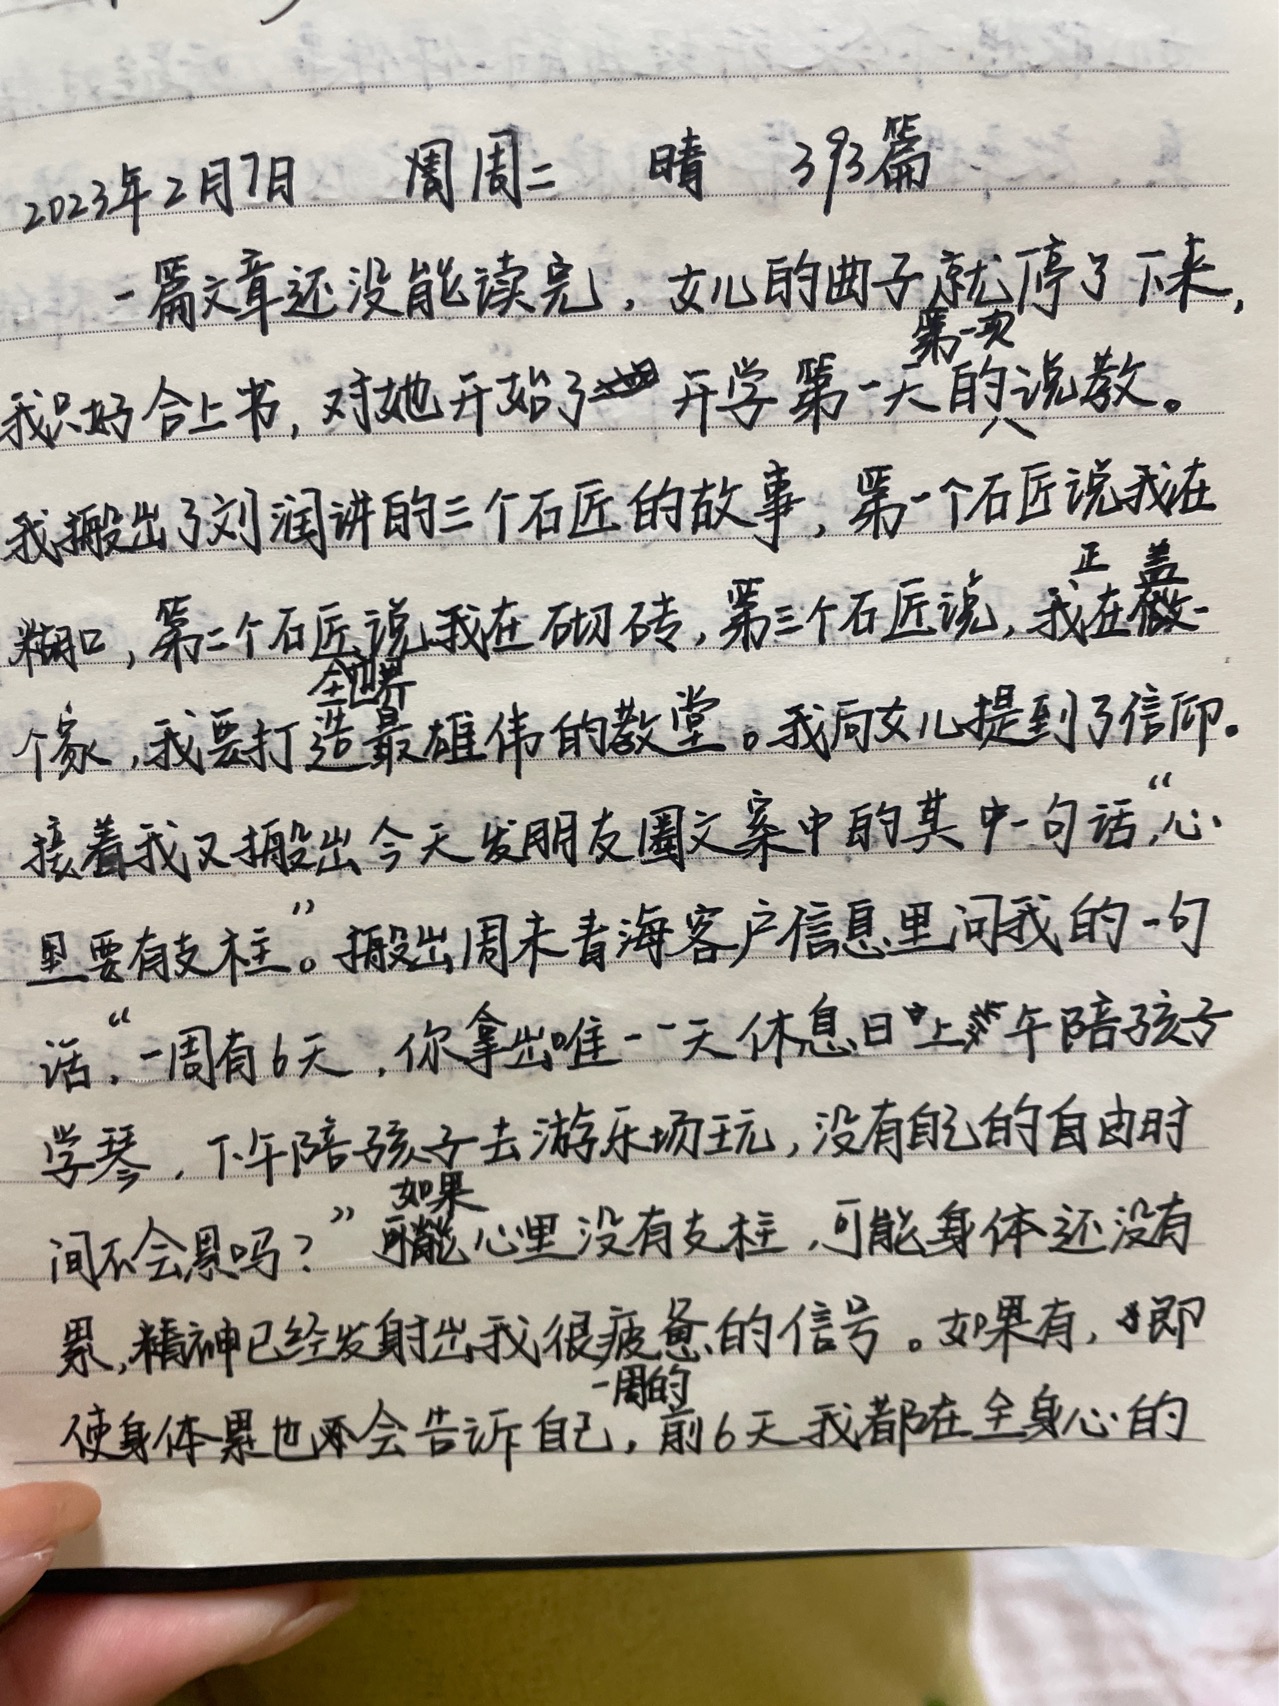 2023年2月7日 周周二 晴 393篇
一篇文章还没能读完，女儿的曲子就停了下来，
第一次
我只好合上书，对她开始了 开学第一天的说教。
我搬出了刘润讲的三个石匠的故事，第一个石匠说我在
正 盖
糊口，第二个石匠说我在砌砖，第三个石匠说，我在做一
全世界
个家，我要打造最雄伟的教堂。我向女儿提到了信仰。
接着我又搬出今天发朋友圈文案中的其中一句话，“心
里要有支柱”。搬出周末青海客户信息里问我的一句
话，“一周有6天，你拿出唯一一天休息日中上午陪孩子
学琴，下午陪孩子去游乐场玩，没有自己的自由时
如果
间不会累吗？”可能心里没有支柱，可能身体还没有
累，精神已经发射出我很疲惫的信号。如果有，即
一周的
使身体累也不会告诉自己，前6天我都在全身心的